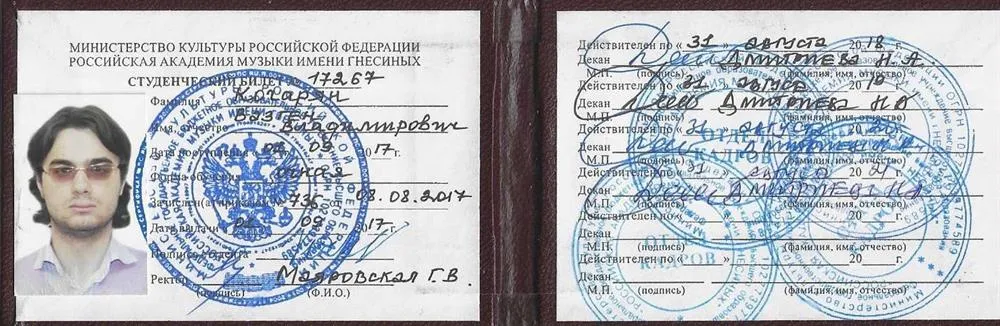 МИНИСТЕРСТВО КУЛЬТУРЫ РОССИЙСКОЙ ФЕДЕРАЦИИ
РОССИЙСКАЯ АКАДЕМИЯ МУЗЫКИ ИМЕНИ ГНЕСИНЫХ
СТУДЕНЧЕСКИЙ БИЛЕТ 17267
Фамилия Кочарян
Имя, отчество Вазген Владимирович
Дата поступления 09 2017 г.
очная
Зачислен(а) приказом № 736 08.08.2017
Дата выдачи 09 2017 г.
Подпись студента
Ректор Маяровская Г.В.
(подпись) (Ф.И.О.)
Действителен по « 31 » августа 2018 г.
Декан Дмитриева Н.А
М.П. (подпись) (фамилия, имя, отчество)
Действителен по « 31 » август 2019 г.
Декан Дмитриева НА
М.П. (подпись) (фамилия, имя, отчество)
Действителен по « 31 » августа 2020 г.
Декан Дмитриева Н.А.
М.П. (подпись) (фамилия, имя, отчество)
Действителен по « 31 » августа 2021 г.
Декан Дмитриева НА
М.П. (подпись) (фамилия, имя, отчество)
Действителен по « » 20 г.
Декан
М.П. (подпись) (фамилия, имя, отчество)
Действителен по « » 20 г.
Декан
М.П. (подпись) (фамилия, имя, отчество)
ОТДЕЛ
КАДРОВ
ОТДЕЛ
КАДРОВ